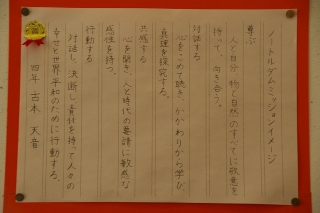 ノートルダムミッションイメージ
尊ぶ
人と自分、物と自然のすべてに敬意を
持って、向き合う。
対話する
心をこめて聴き、かかわりから学び、
真理を探究する。
共感する
心を開き、人と時代の要請に敏感な
感性を持つ。
行動する
対話し、決断し、責任を持って人々の
幸せと世界平和のために行動する。
四年 古木 天音